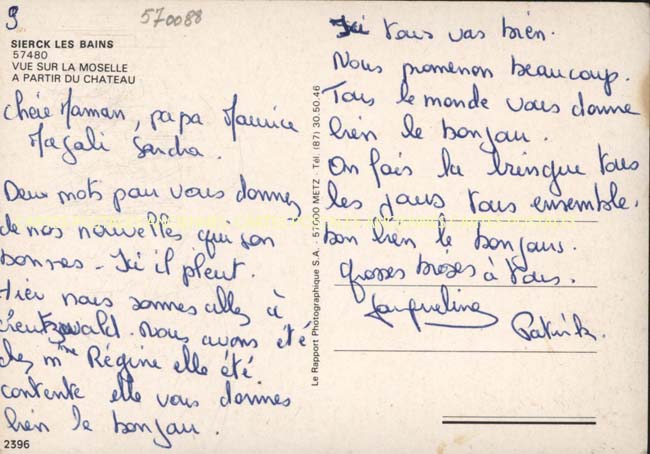 9
570088
SIERCK LES BAINS
57480
VUE SUR LA MOSELLE
A PARTIR DU CHATEAU
Chère Maman, papa Maurice
Magali Sandra.
Deux mots pour vous donnez
de nos nouvelles qui son
bonnes - Ici il pleut.
Hier nous sommes allez à
nous avons été
chez mme Régine elle été
contente elle vous donnes
bien le bonjour.
2396
Le Rapport Photographique S.A. - 57000 METZ - Tél. (87) 30.50.46
Ici tous vas bien.
Nous promenon beaucoup.
Tous le monde vous donne
bien le bonjour.
On fais la bringue tous
les jours tous ensemble.
bon bien le bonjours.
grosses bises à tous.
Jacqueline
Patrick.